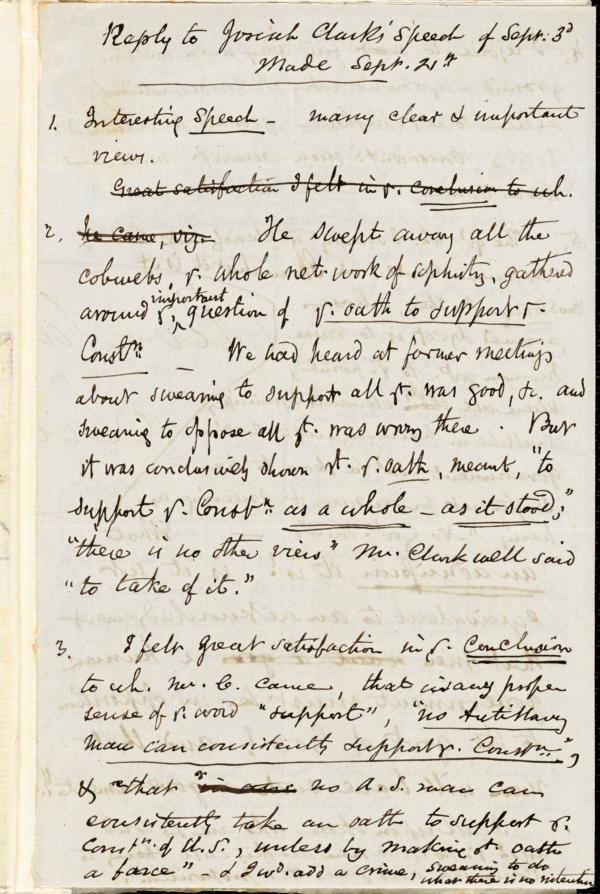 Reply to Josiah Clark's Speech of Sept. 3d
Made Sept. 21st
1. Interesting Speech - many clear & important
views.
Great satisfaction I felt in y. conclusion to wh.
2. he came, viz. He swept away all the
cobwebs, y. whole net-work of sophistry, gathered
important
around y. question of y. oath to support y.
Constn. - We had heard at former meetings
about swearing to support all yt. was good, &c. and
swearing to oppose all yt. was wrong there. But
it was conclusively shown yt. y. oath, meant, "to
support y. Constn. as a whole - as it stood;"
"there is no other view" Mr. Clark well said
"to take of it."
3. I felt great satisfaction in y. conclusion
to wh. Mr. C. came, that in any proper
sense of y. word "support", "no Antislavery
man can consistently support y. Constn.",
& "that no A.S. man can
consistently take an oath to support y.
Constn. of U.S., unless by making yt. oath
a farce" - & I wd. add a crime, swearing to do
what there is no intention